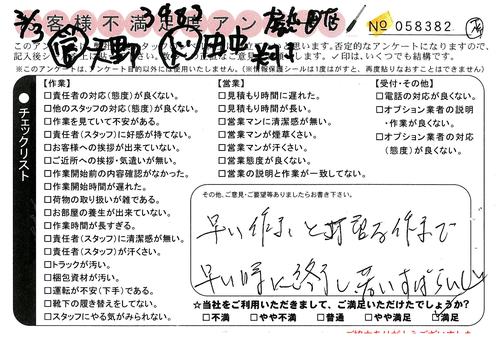 お客様不満足度アンケート
№ 058382
このアンケートは
思います。否定的なアンケートになりますので、
記入後
✓印は、いくつでも結構です。
※このアンケートは、アンケート目的以外には使用いたしません。(※情報保護シールは1度はがすと、再度貼りなおすことはできません)
チェックリスト
【作業】
□責任者の対応(態度)が良くない。
□他のスタッフの対応(態度)が良くない。
□作業を見ていて不安がある。
□責任者(スタッフ)に好感が持てない。
□お客様への挨拶が出来ていない。
□ご近所への挨拶・気遣いが無い。
□作業開始前の内容確認がなかった。
□作業開始時間が遅れた。
□荷物の取り扱いが雑である。
□お部屋の養生が出来ていない。
□作業時間が長すぎる。
□責任者(スタッフ)に清潔感が無い。
□責任者(スタッフ)が汗くさい。
□トラックが汚い。
□梱包資材が汚い。
□運転が不安(下手)である。
□靴下の履き替えをしてない。
□スタッフにやる気がみられない。
【営業】
□見積もり時間に遅れた。
□見積もり時間が長い。
□営業マンに清潔感が無い。
□営業マンが煙草くさい。
□営業マンが汗くさい。
□営業態度が良くない。
□営業の説明と作業が一致してない。
【受付・その他】
□電話の対応が良くない。
□オプション業者の説明
・作業が良くない。
□オプション業者の対応
(態度)が良くない。
その他、ご意見・ご要望等ありましたらお書き下さい。
早い作業
作業まで
早い時に終了し
すばらしい
☆当社をご利用いただきまして、ご満足いただけたでしょうか?
□不満 □やや不満 □普通 □やや満足 ☑満足